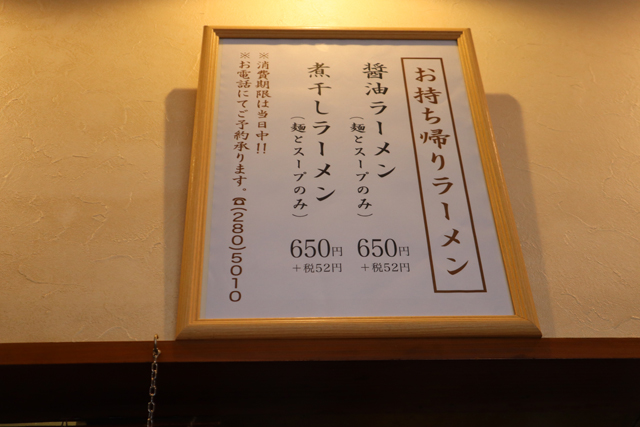 お持ち帰りラーメン
醤油ラーメン
（麺とスープのみ）
650円
＋税52円
煮干しラーメン
（麺とスープのみ）
650円
＋税52円
※消費期限は当日中!!
※お電話にてご予約承ります。☎(280)5010